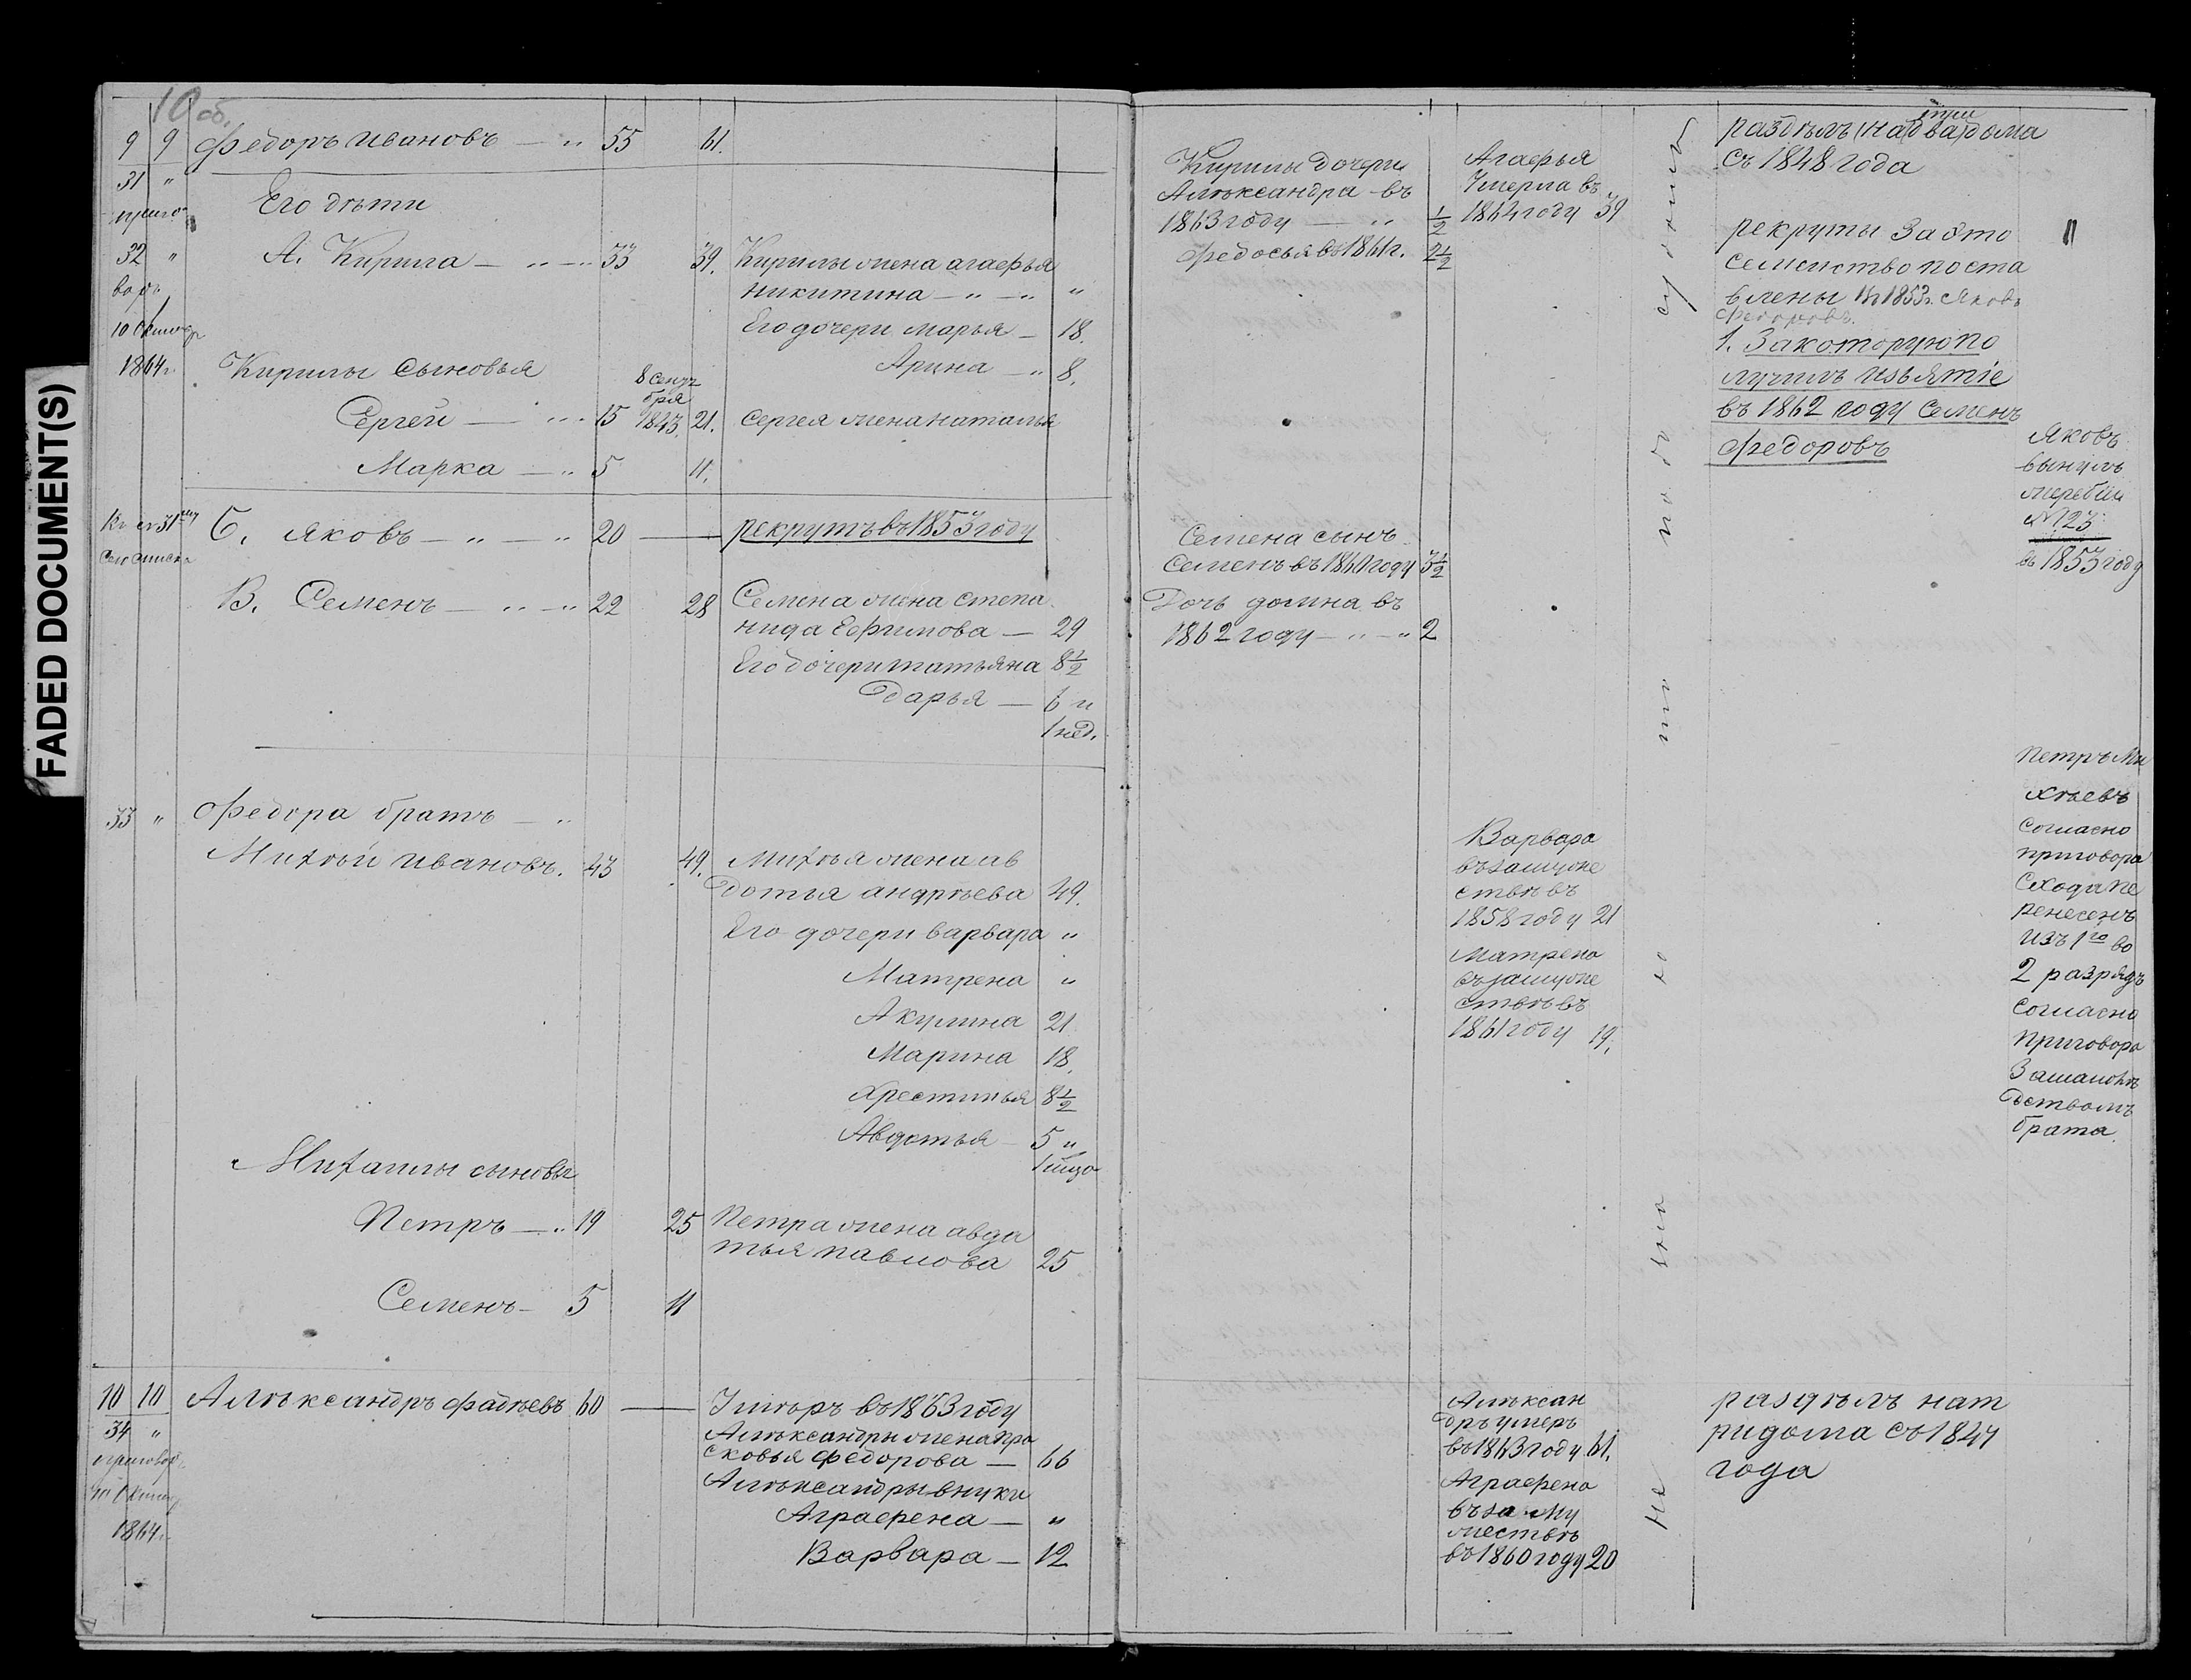 FADED DOCUMENT(S)
10 об.
9 9 Федоръ Ивановъ — „ 55 61.
31 „
приго
Его дѣти
32 „ А. Кирила — „ — „ 33 39. Кирилы жена агафья
воръ
никитина — „ — „ „
10 Октябр
Его дочери марья — 18.
1864 г. Кирилы сыновья
Арина — „ 8.
8 сентя
бря
Сергей — „ 15 1843. 21. Сергея жена наталья
Марка — „ 5 11.
Кн. №31му
сего списка
Б. яковъ — „ — „ 20 — рекрутъ въ 1853 году
В. Семенъ — „ — „ 22 28 Семена жена степа
нида Ефимова — 29
Его дочери татьяна 8 1/2
Дарья — 6 и
1 нед.
33 „ Федора братъ — „
Михѣй ивановъ. 43 49. Михѣя жена ав
дотья андрѣева 49.
Его дочери варвара „
Матрена „
Акулина 21
Марина 18.
Хрестинья 8 1/2
Авдотья — 5 „
Михаилы сыновья
Петръ — „ 19 25 Петра жена авдо
тья павлова 25
Семенъ — 5 11
10 10 Алѣксандръ фадѣевъ 60 — Умѣръ въ 1863 году
34 „
Алѣксандры жена пра
сковья федорова — 66
приговор.
Алѣксандры внуки
10 Октяб
Аграфена — „
1864 г.
Варвара — 12
Кирилы дочери
Алѣксандра въ
1863 году — „ 1/2
Федосья въ 1861 г. 2 1/2
Семена сынъ
Семенъ въ 1860 году 3 1/2
Дочь домна въ
1862 году — „ — „ 2
Агафья
Умерла въ
1864 году 39
Варвара
въ замуже
ствѣ въ
1858 году 21
Матрена
въ замуже
ствѣ въ
1861 году 19.
Алѣксан
дръ умеръ
въ 1863 году 61.
Аграфена
въ за му
жествѣ
въ 1860 году 20
три
раздѣлъ (на два) дыма
съ 1848 года
рекруты За это
семейство поста
влены въ 1853 г. Яковъ
Федоровъ.
1. За которую по
лучилъ изъятіе
въ 1862 году Семенъ
Федоровъ
раздѣлъ нат
ри дома съ 1847
года
Яковъ
вынулъ
жеребій
№ 23
въ 1853 году
Петръ Ми
хѣевъ
согласно
приговора
Схода пе
ренесенъ
изъ 1го во
2 разрядъ
согласно
приговора
За малолѣ
тствомъ
брата.